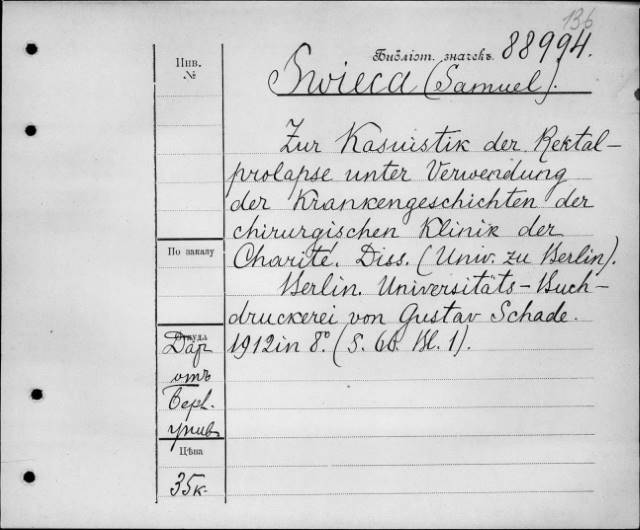 136
Инв.
№
Библіот. значекъ. 88994.
Swieca (Samuel).
Zur Kasuistik der Rektal-
prolapse unter Verwendung
der Krankengeschichten der
chirurgischen Klinik der
Charité. Diss. (Univ. zu Berlin).
Berlin. Universitäts-Buch-
druckerei von Gustav Schade.
1912 in 8°. (S. 60. Bl. 1).
По заказу
Откуда
Дар
отъ
Берл.
унив.
Цѣна
35к.